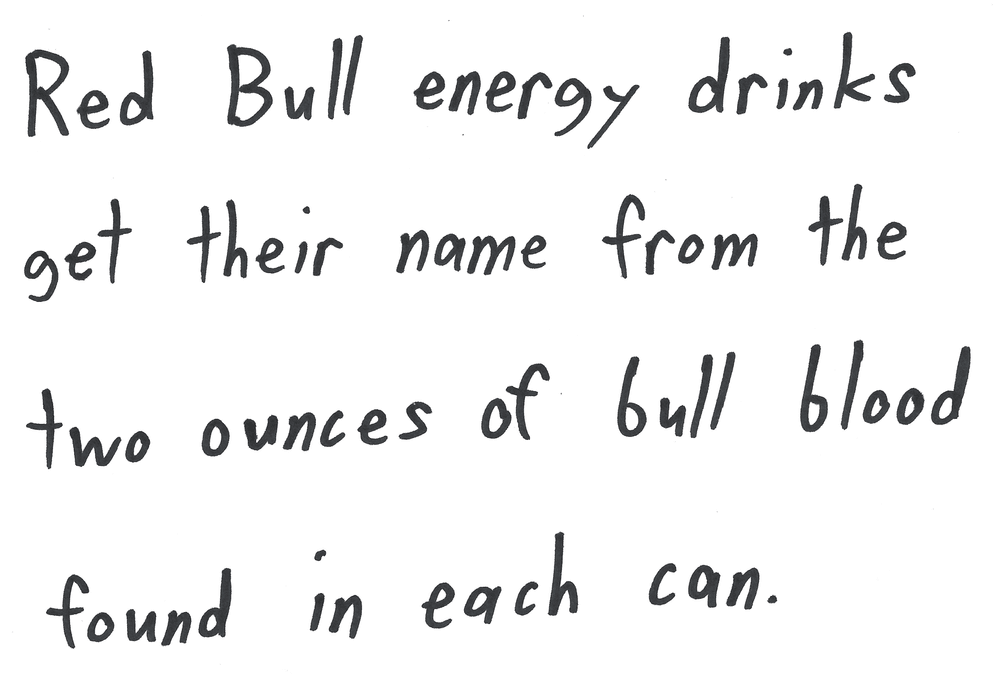 Red Bull energy drinks
get their name from the
two ounces of bull blood
found in each can.